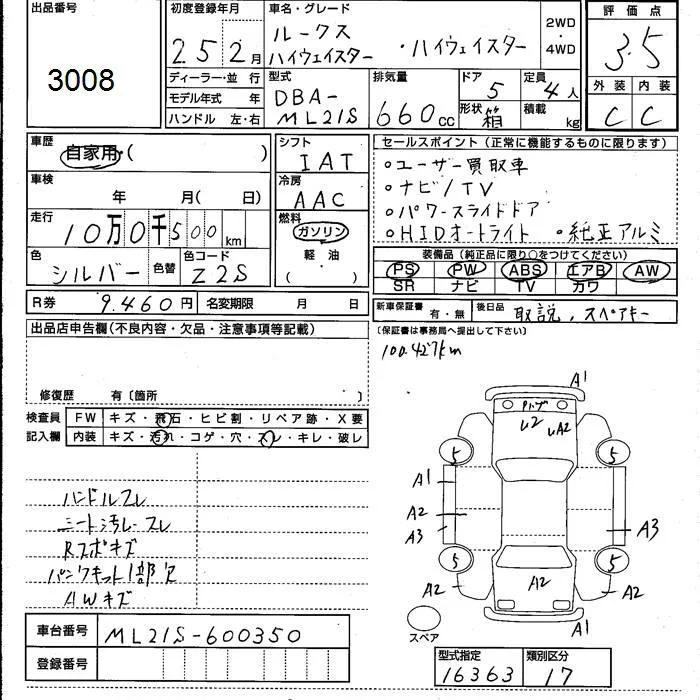 出品番号
3008
初度登録年月
25 2月
ディーラー・並 行
モデル年式 年
ハンドル 左・右
車名・グレード
ルークス
ハイウェイスター ・ハイウェイスター
2WD
・
4WD
型式
DBA-
ML21S
排気量
660cc
ドア
5
形状 箱
定員
4人
積載
kg
評価点
3.5
外装 内装
C C
車歴
自家用・( )
車検
年 月( 日)
走行
10万0千500km
色
シルバー
色替
色コード
Z2S
シフト
IAT
冷房
AAC
燃料
ガソリン
軽油
( )
セールスポイント(正常に機能するものに限ります)
○ユーザー買取車
○ナビ/TV
○パワースライドドア
○HIDオートライト ○純正アルミ
装備品(純正品に限り○をつけてください)
PS PW ABS エアB AW
SR ナビ TV カワ
R券 9.460円 名変期限 月 日
新車保証書 有・無 後日品 取説、スペアキー
(保証書は事務局へ提出して下さい)
出品店申告欄(不良内容・欠品・注意事項等記載)
修復歴 有〔箇所 〕
100.427km
検査員
記入欄
FW キズ・飛石・ヒビ割・リペア跡・X要
内装 キズ・汚れ・コゲ・穴・スレ・キレ・破レ
ハンドルスレ
シート汚レースレ
Rスポキズ
パンクキット1部欠
AWキズ
A1
U2 UA2
5 5
A1
A2
A3
A3
5 5
A2 A2 A2
A1
スペア
車台番号 ML21S-600350
登録番号
型式指定 類別区分
16363 17